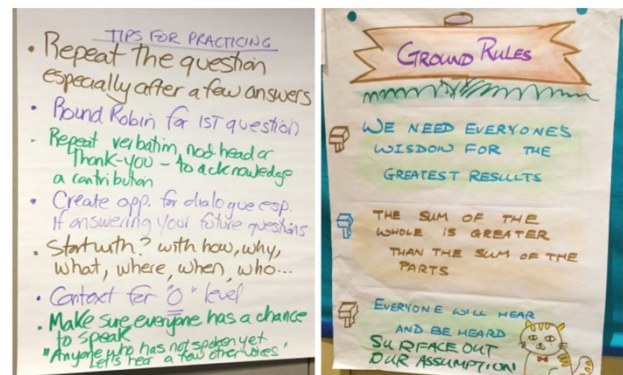 TIPS FOR PRACTICING
• Repeat the question
especially after a few answers
• Round Robin for 1ST question
• Repeat verbatim, nod head or
Thank-you – to acknowledge
a contribution
• Create opp. for dialogue esp.
If answering your future questions
• Start with ? with how, why,
what, where, when, who...
• Context for "O" level
• Make sure everyone has a chance
to speak
"Anyone who has not spoken yet
Let's hear a few other voices"
GROUND RULES
WE NEED EVERYONE'S
WISDOM FOR THE
GREATEST RESULTS
THE SUM OF THE
WHOLE IS GREATER
THAN THE SUM OF THE
PARTS
EVERYONE WILL HEAR
AND BE HEARD
SURFACE OUT
OUR ASSUMPTION